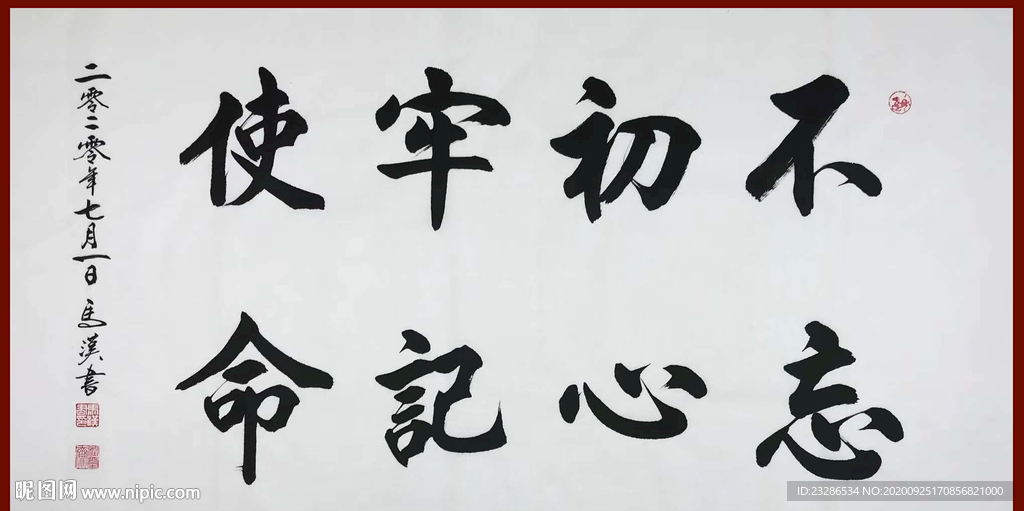 不忘
初心
牢記
使命
二零二零年七月一日 馬漢書
昵图网 www.nipic.com
ID:23286534 NO:20200925170856821000